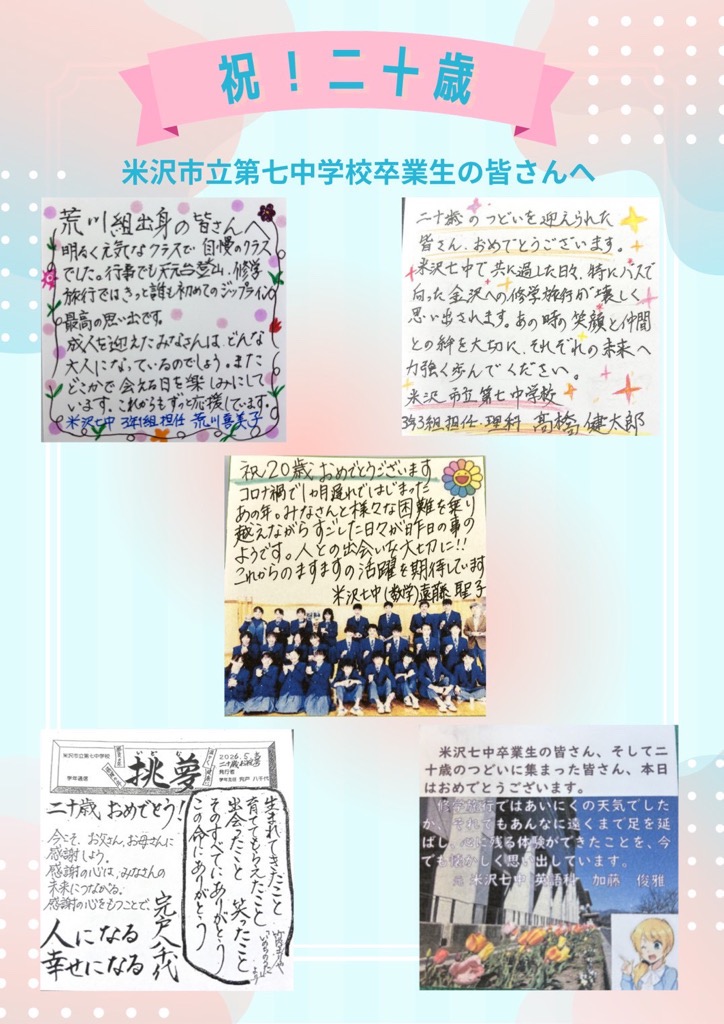 祝！二十歳
米沢市立第七中学校卒業生の皆さんへ
荒川組出身の皆さんへ
明るく元気なクラスで自慢のクラス
でした。行事でも天元台登山、修学
旅行ではきっと誰も初めてのジップライン
最高の思い出です。
成人を迎えたみなさんは、どんな
大人になっているのでしょう。また
どこかで会える日を楽しみにして
います。これからもずっと応援しています。
米沢七中 3年1組担任 荒川喜美子
二十歳のつどいを迎えられた
皆さん、おめでとうございます。
米沢七中で共に過した日々、特にバスで
向った金沢への修学旅行が懐しく
思い出されます。あの時の笑顔と仲間
との絆を大切に、それぞれの未来へ
力強く歩んでください。
米沢市立第七中学校
3年3組担任・理科 髙橋健太郎
祝20歳おめでとうございます
コロナ禍で1ヵ月遅れではじまった
あの年。みなさんと様々な困難を乗り
越えながらすごした日々が昨日の事の
ようです。人との出会いを大切に!!
これからのますますの活躍を期待しています
米沢七中(数学)遠藤聖子
米沢市立第七中学校
学年通信
挑夢
2026.5.
二十歳お祝号
発行者
学年主任 宍戸 八千代
二十歳、おめでとう!
今こそ、お父さん、お母さんに
感謝しよう。
感謝の心は、みなさんの
未来につながる。
感謝の心をもつことで、
人になる
幸せになる
宍戸八千代
生まれてきたこと
育ててもらえたこと
出会ったこと 笑ったこと
そのすべてにありがとう
この命にありがとう
米沢七中卒業生の皆さん、そして二
十歳のつどいに集まった皆さん、本日
はおめでとうございます。
修学旅行ではあいにくの天気でした
が、それでもあんなに遠くまで足を延
ばし、心に残る体験ができたことを、今
でも懐かしく思い出しています。
元 米沢七中 英語科 加藤 俊雅